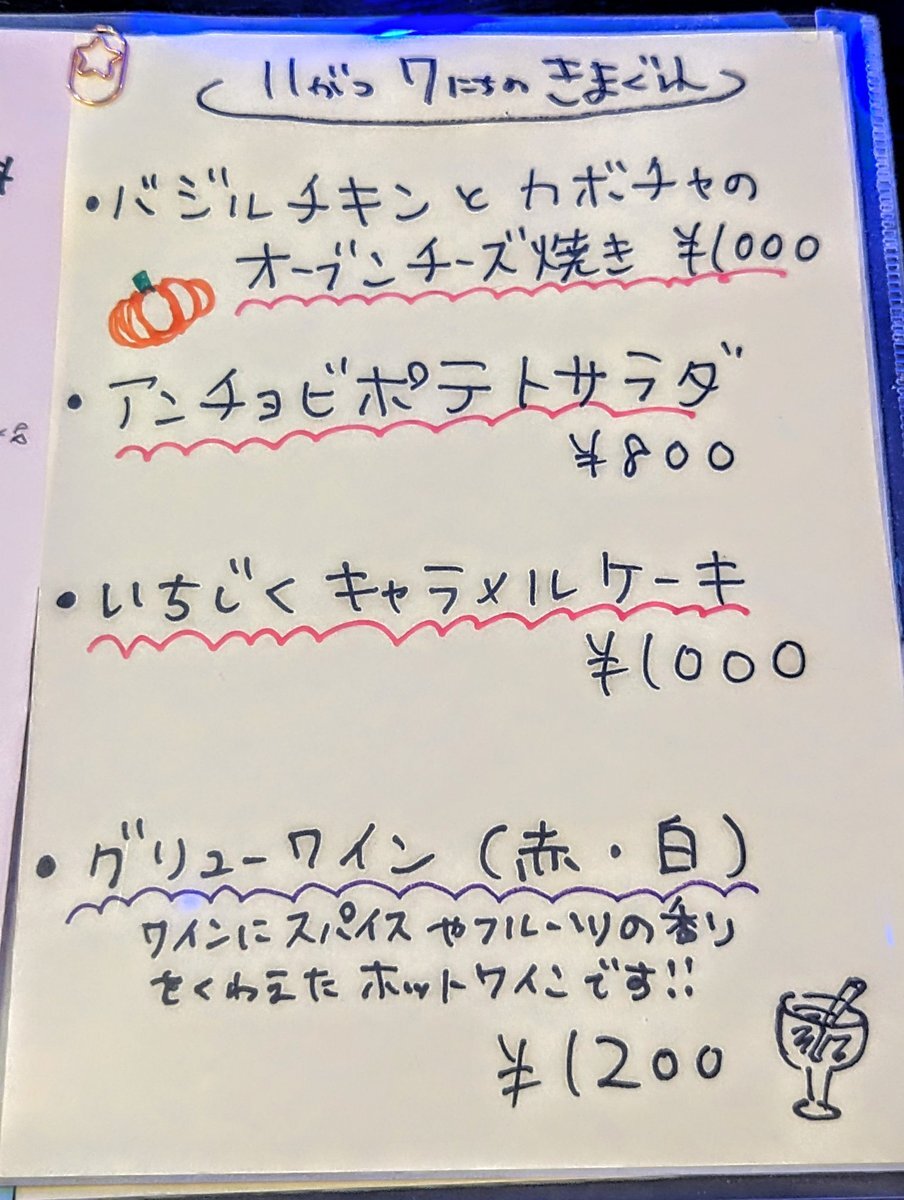 11がつ 7にちの きまぐれ
・バジルチキンと カボチャの
オーブンチーズ焼き ¥1000
・アンチョビポテトサラダ
¥800
・いちじくキャラメルケーキ
¥1000
・グリューワイン (赤・白)
ワインにスパイスやフルーツの香り
をくわえた ホットワインです!!
¥1200